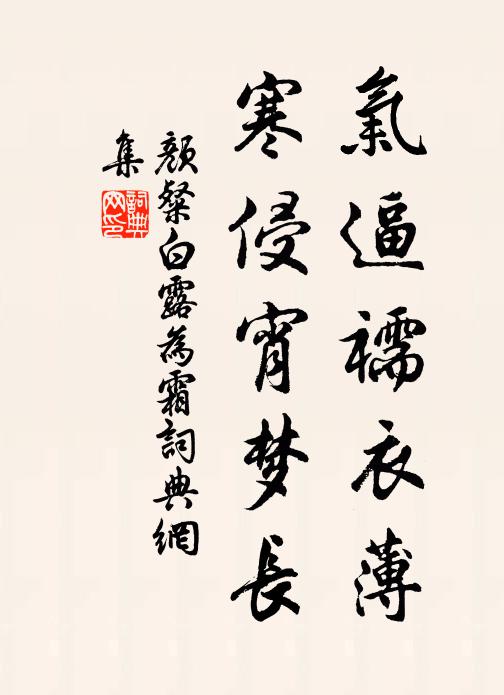 氣逼襦衣薄
寒侵宵梦長
顏粲白露為霜詞典網
集
詞典網印